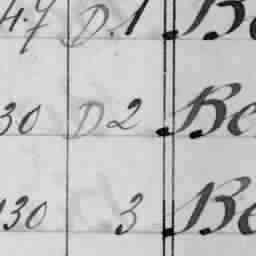 47 D.1 Be
30 D 2 Be
130 3 Be